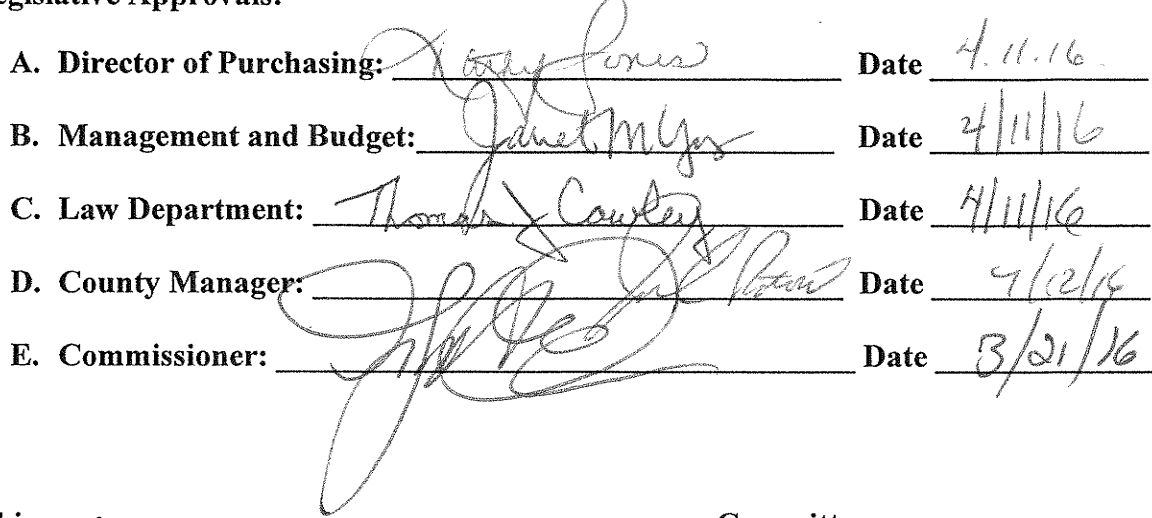 Legislative Approvals:
A. Director of Purchasing: Kathy Jones Date 4.11.16
B. Management and Budget: Janet M Date 4/11/16
C. Law Department: Thomas J Cawley Date 4/11/16
D. County Manager: Date 4/12/16
E. Commissioner: Date 3/21/16